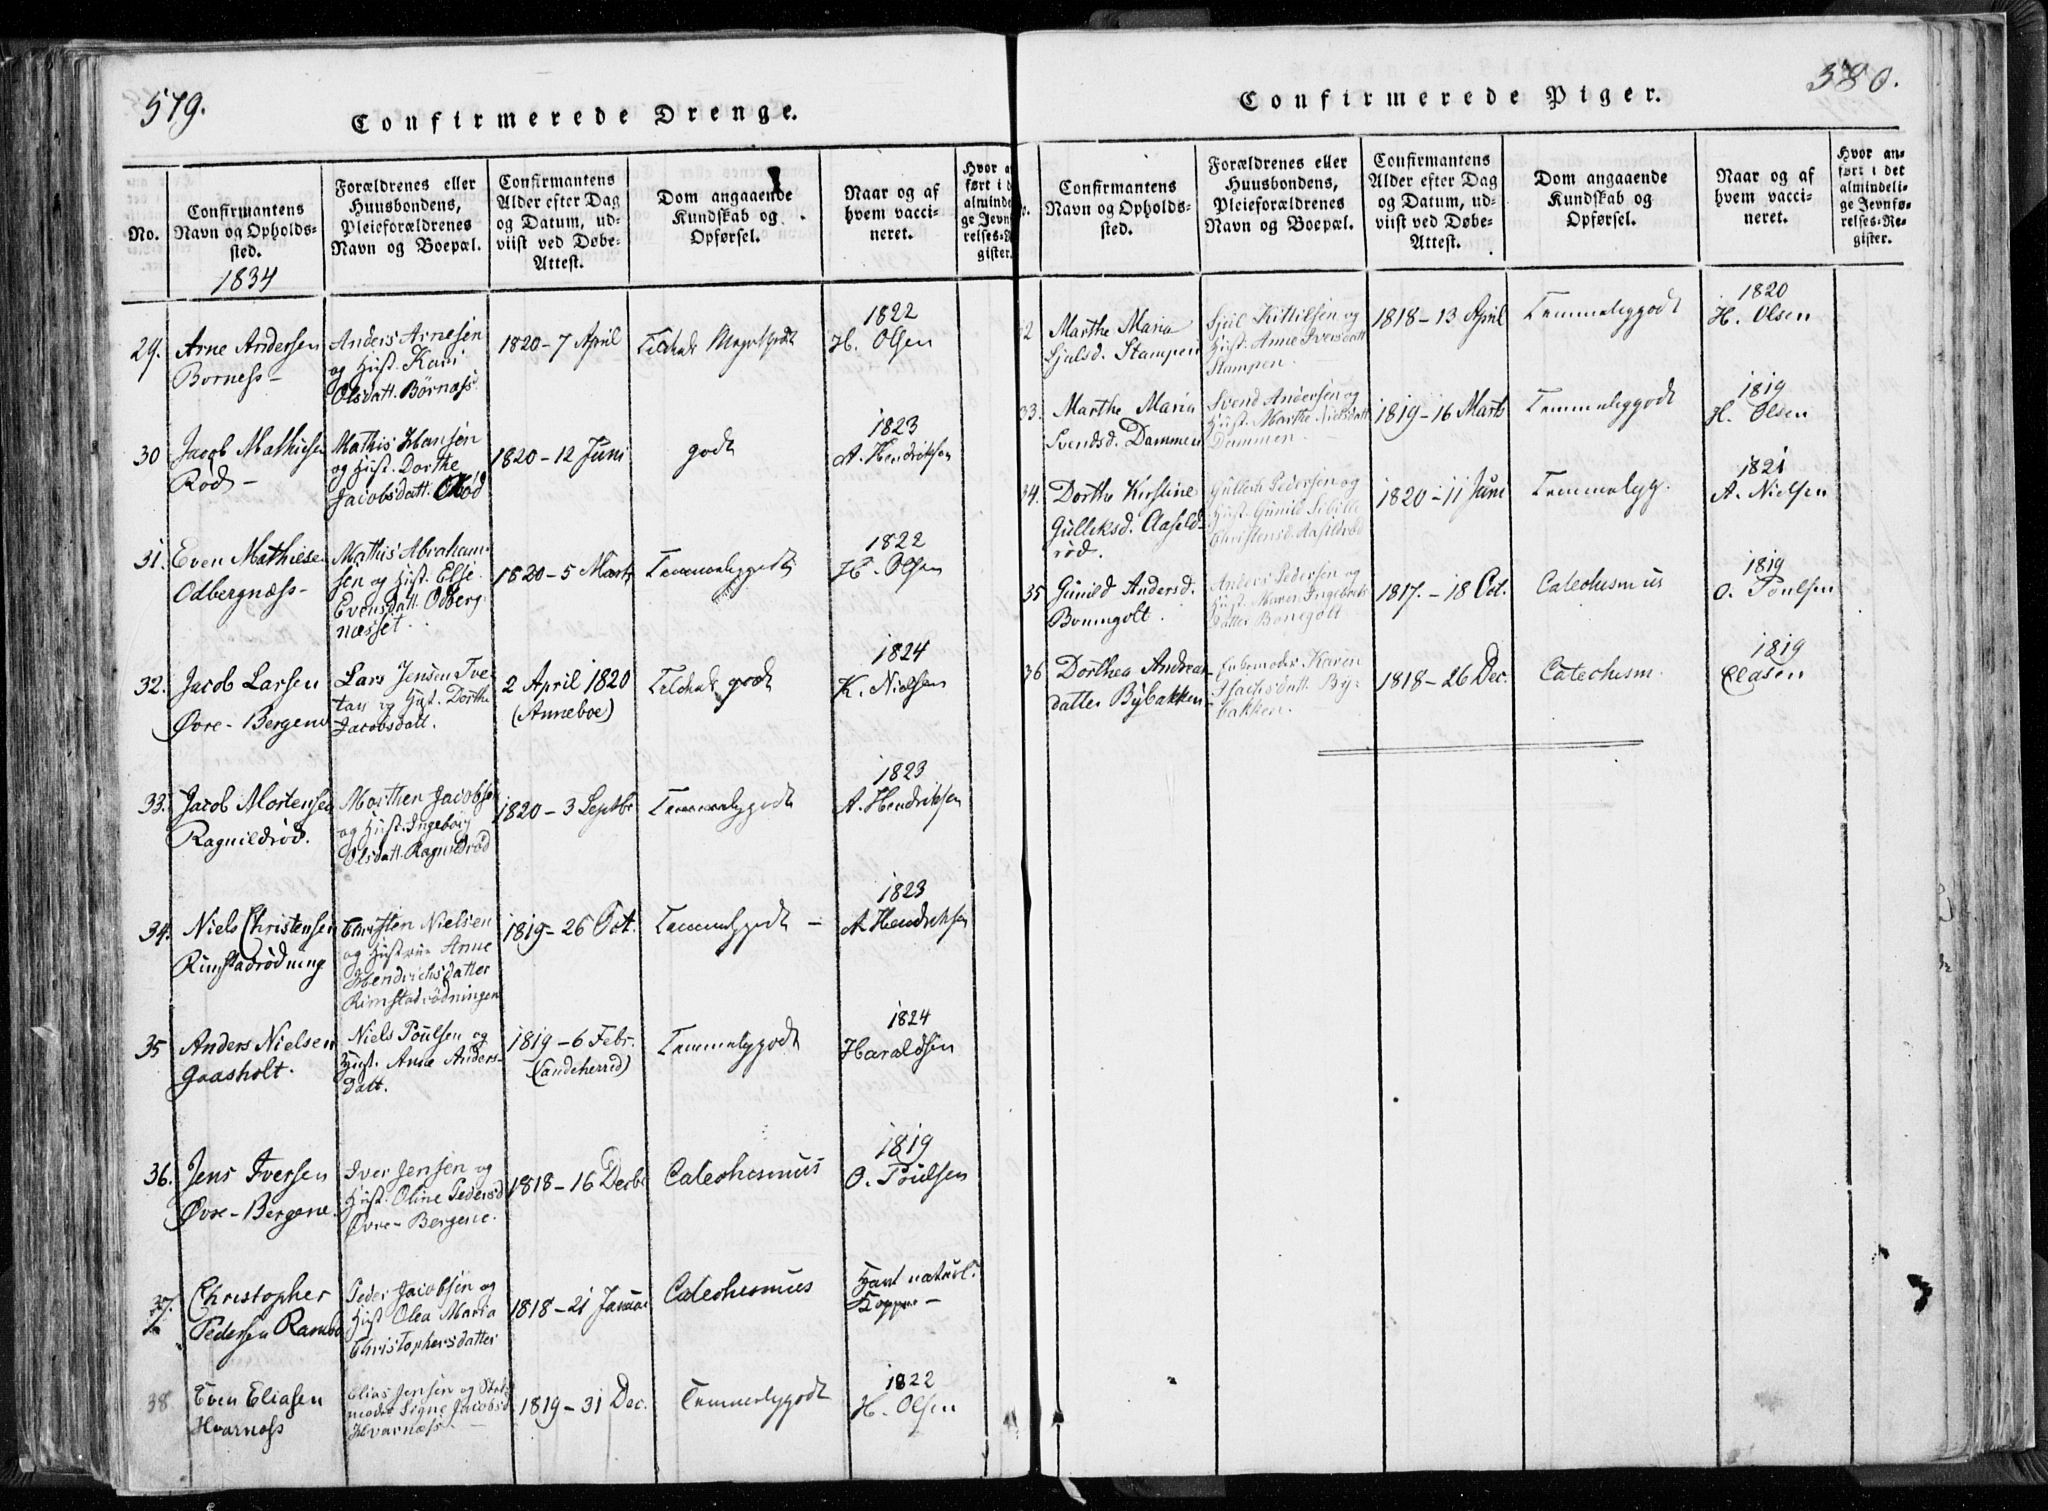 579.
Confirmerede Drenge.
No.
Confirmantens Navn og Opholds-sted.
Forældrenes eller Huusbondens, Pleieforældrenes Navn og Boepæl.
Confirmantens Alder efter Dag og Datum, ud-viist ved Døbe-Attest.
Dom angaaende Kundskab og Opførsel.
Naar og af hvem vacci-neret.
1834
29. Arne Andersen
Borness-
Anders Arnesen
og Hust. Kari
Olsdatt. Börnæss.
1820-7 April
1822
H. Olsen
30 Jacob Mathisen
Rød-
Mathis Hansen
og Hust. Dorthe
Jacobsdatt. Rød
1820-12 Juni
godt
1823
A. Hendriksen
31. Even Mathiese
Odbergnæss-
Mathis Abraham-
sen og Hust. Else
Evensdatt. Odberg
næsset.
1820-5 Marts
Temmeliggodt
1822
H. Olsen
32. Jacob Larsen
Øvre-Bergene
Lars Jensen Tve-
tan og Hust. Dorthe
Jacobsdatt.
2 April 1820
(Anneboe)
godt
1824
K. Nielsen
33. Jacob Mortensen
Ragnildrød.
Morthen Jacobse
og Hust. Ingeborg
Olsdatt. Ragnildrød
1820-3 Septbr
Temmeliggodt
1823
A. Hendriksen
34. Niels Christensen
Rimstadrødning
Christen Nielsen
og Hustrue Anne
Hendrichsdatter
Rimstadrødningen
1819-26 Oct.
Temmeliggodt -
1823
A. Hendriksen
35 Anders Nielsen
Gaasholt.
Niels Poulsen og
Hust. Anne Anders-
datt.
1819-6 Febr.
(Sandeherred)
Temmeliggodt
1824
Haraldsen
36. Jens Iversen
Øvre-Bergene.
Iver Jensen og
Hust. Oline Pedersd
Øvre-Bergene.
1818-16 Decbr
Catechismus
1819
O. Poulsen
37. Christopher
Pedersen
Peder Jacobsen og
Hust. Olea Maria
Christophersdatter
1818-21 Januar
Catechismus
Havt naturl.
Kopper-
38 Even Eliasen
Hvarnæss
Elias Jensen og
moder Signe Jacobsd
Hvarnæss-
1819-31 Dec.
Temmeliggodt
1822
H. Olsen
380.
Confirmerede Piger.
Confirmantens Navn og Opholds-sted.
Forældrenes eller Huusbondens, Pleieforældrenes Navn og Boepæl.
Confirmantens Alder efter Dag og Datum, ud-viist ved Døbe-Attest.
Dom angaaende Kundskab og Opførsel.
Naar og af hvem vacci-neret.
Hvor an-ført i det almindeli-ge Jevnfø-relses-Re-gister.
Marthe Maria
Sjulsd. Stampen
Sjul Kittilsen og
Hust. Anne Iversdatt
Stampen.
1818-13 April
Temmeliggodt
1820
H. Olsen
33. Marthe Maria
Svendsd. Dammen
Svend Andersen og
Hust. Marthe Nielsdatt
Dammen.
1819-16 Marts
Temmeliggodt
1819
H. Olsen
34. Dorthe Kirstine
Gulleksd. Aasild-
rød.
Gullech Pedersen og
Hust. Gunild Sibille
Christensd. Aasildrød
1820-11 Juni
1821
A. Nielsen
35 Gunild Andersd.
Anders Pedersen og
Hust. Maren Ingebrets
datter
1817.-18 Oct.
Catechismus
1819
O. Poulsen
36 Dorthea Andreas
datter Bÿbakken
Karen
Bÿ-
bakken.
1818-26 Dec.
Catechism.
1819
Clasen